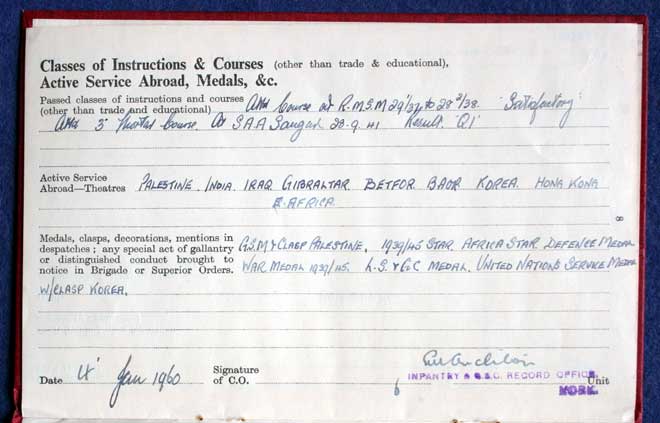 Classes of Instructions & Courses (other than trade & educational),
Active Service Abroad, Medals, &c.
Passed classes of instructions and courses Att Course at R.M.S.M 29/ /37 to 28 2/38. "Satisfactory"
(other than trade and educational)
Att 3" Mortar Course. At S A A Saugad 28.9.41 Result. "Q1"
Active Service
Abroad—Theatres PALESTINE. INDIA. IRAQ GIBRALTAR BETFOR BAOR KOREA. HONG KONG
E. AFRICA
8
Medals, clasps, decorations, mentions in
despatches; any special act of gallantry G.S.M & CLASP PALESTINE. 1939/45 STAR. AFRICA STAR DEFENCE MEDAL
or distinguished conduct brought to
notice in Brigade or Superior Orders. WAR MEDAL 1939/45. L.S. & G.C MEDAL. UNITED NATIONS SERVICE MEDAL
W/CLASP KOREA.
Date 4 Jan 1960 Signature
of C.O.
INFANTRY & G.S.C. RECORD OFFICE Unit
6 YORK.